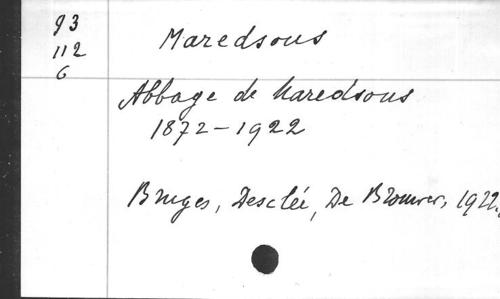 93
112
6
Maredsous
Abbaye de Maredsous
1872-1922
Bruges, Desclée, De Brouwer, 1922.